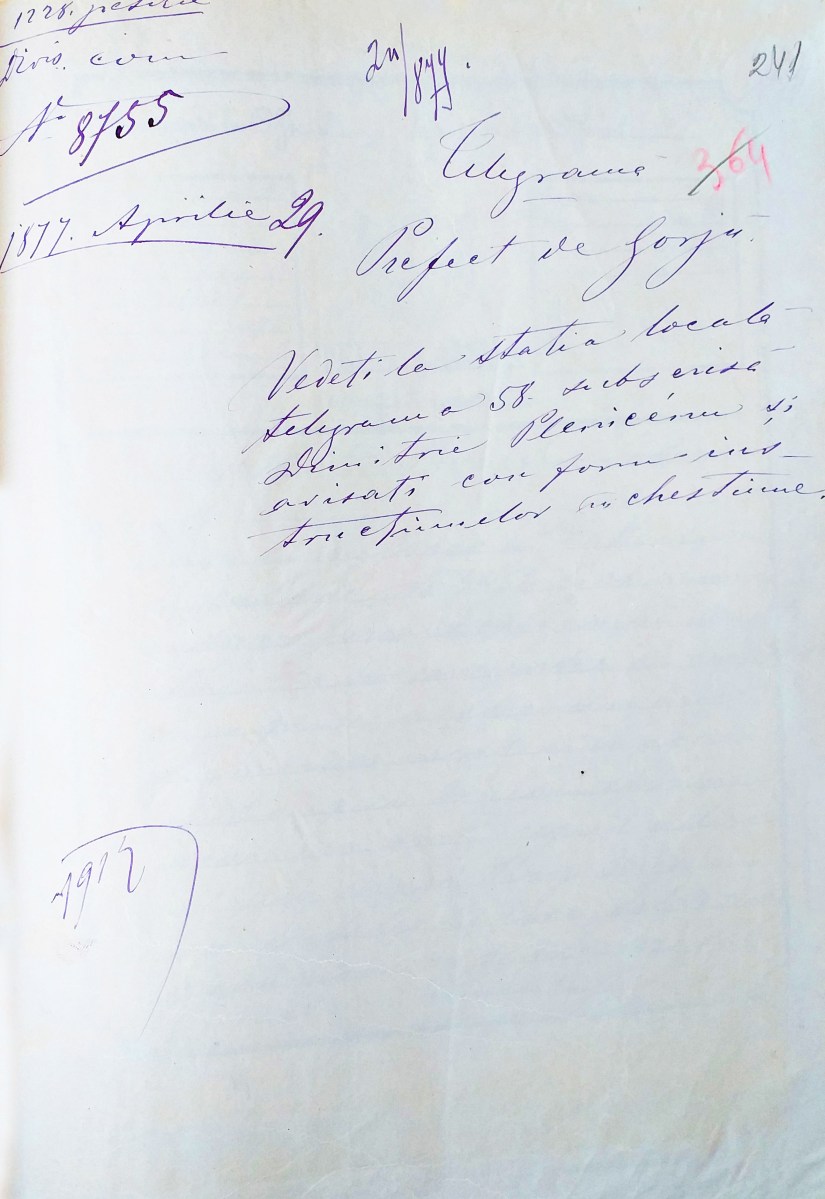 1228.
Divis. com
No 8755
1877. Aprilie 29.
21/877.
241
364
Telegramă
Prefect de Gorjŭ.
Vedeți la stația locală
telegrama 58 subscrisă
Dimitrie Plenicénu și
avisați conform ins-
trucțiunelor în chestiune.